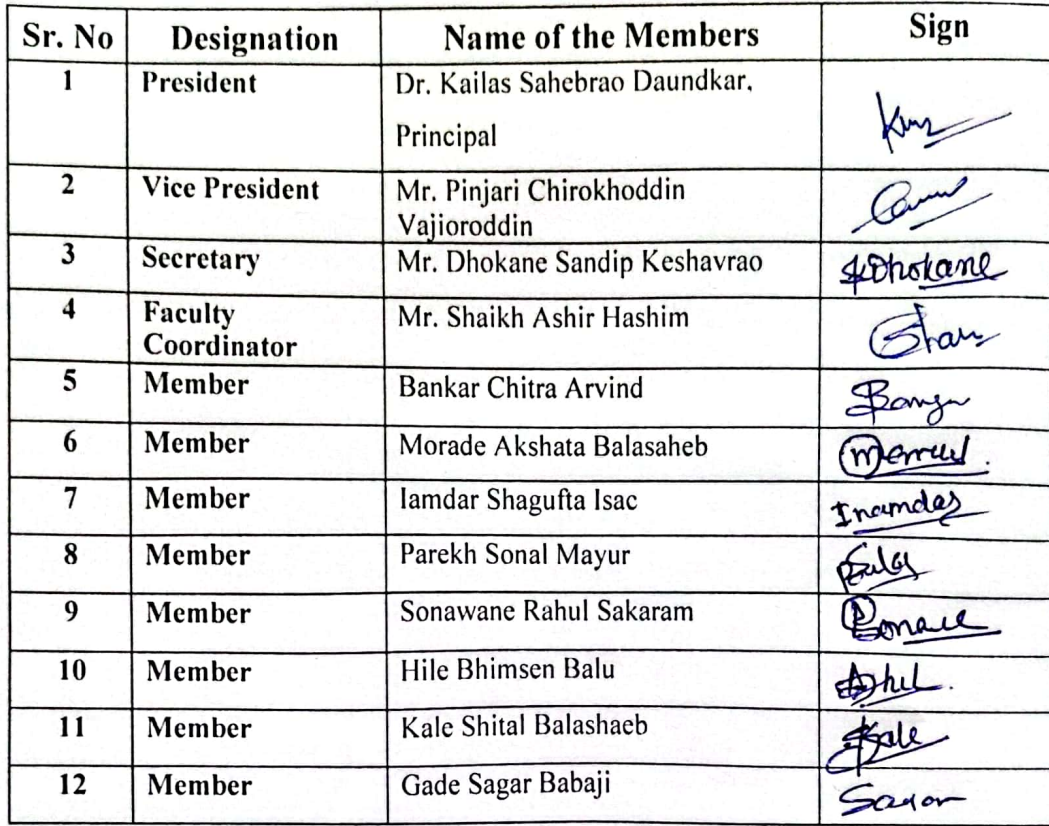 Sr. No Designation Name of the Members Sign
1 President Dr. Kailas Sahebrao Daundkar,
Principal
2 Vice President Mr. Pinjari Chirokhoddin
Vajioroddin
3 Secretary Mr. Dhokane Sandip Keshavrao SKDhokane
4 Faculty Mr. Shaikh Ashir Hashim
Coordinator
5 Member Bankar Chitra Arvind
6 Member Morade Akshata Balasaheb
7 Member Iamdar Shagufta Isac Inamdar
8 Member Parekh Sonal Mayur
9 Member Sonawane Rahul Sakaram
10 Member Hile Bhimsen Balu
11 Member Kale Shital Balashaeb Kale
12 Member Gade Sagar Babaji